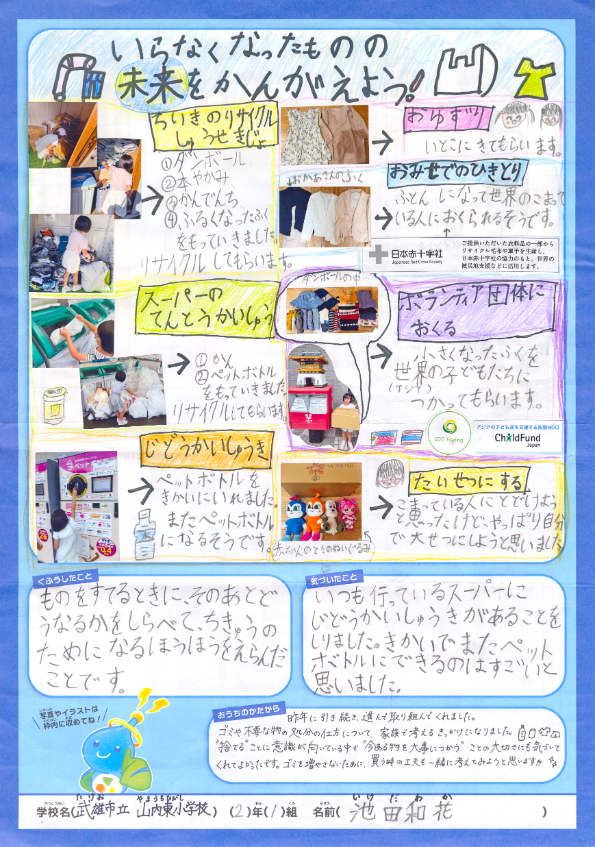 いらなくなったものの
未来をかんがえよう!
ちいきのリサイクル
しゅうせきじょ
①ダンボール
②本やかみ
③かんでんち
④ふるくなったふく
をもっていきました。
リサイクルしてもらいます。
おゆずり
いとこにきてもらいます。
おかあさんのふく
おみせでのひきとり
ふとんになって世界のこまって
いる人におくられるそうです。
日本赤十字社
Japanese Red Cross Society
ご提供いただいた衣料品の一部から
リサイクル毛布や軍手を生産し、
日本赤十字社の協力のもと、世界の
被災地支援などに活用します。
スーパーの
てんとうかいしゅう
①かん
②ペットボトル
をもっていきました
リサイクルしてもらいます。
ダンボールの中
ボランティア団体に
おくる
小さくなったふくを
世界の子どもたちに
(アジア)
つかってもらいます。
アジアの子どもを支援する国際NGO
ChildFund
Japan
じどうかいしゅうき
ペットボトルを
きかいにいれました。
またペットボトル
になるそうです。
赤ちゃんのときのぬいぐるみ
たいせつにする
こまっている人にとどけよう
と思ったけど、やっぱり自分
で大せつにしようと思いました
くふうしたこと
ものをすてるときに、そのあとど
うなるかをしらべて、ちきゅうの
ためになるほうほうをえらんだ
ことです。
気づいたこと
いつも行っているスーパーに
じどうかいしゅうきがあることを
しりました。きかいでまたペット
ボトルにできるのはすごいと
思いました。
写真やイラストは
枠内に収めてね!
おうちのかたから
昨年に引き続き、進んで取り組んでくれました。
ゴミや不要な物の処分の仕方について、家族で考えるきっかけになりました。
"捨てる"ことに意識が向いている中で"今ある物を大事につかう"ことの大切さにも気づいて
くれてよかったです。ゴミを増やさないために、買う時の工夫も一緒に考えてみようと思います!!
学校名(武雄市立 山内東小学校) (2)年(1)組 名前(池田和花)